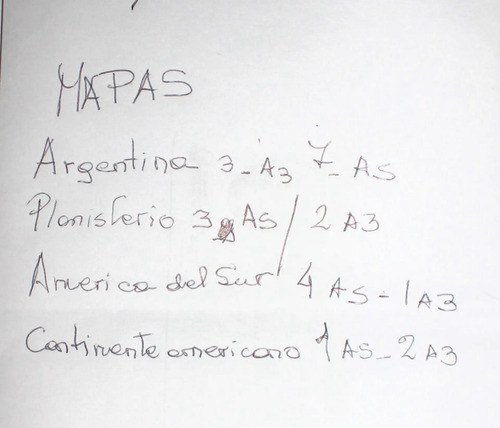 MAPAS
Argentina 3-A3 7-A5
Planisferio 3 A5 / 2 A3
America del Sur 4 A5-1 A3
Continente americano 1 A5-2 A3